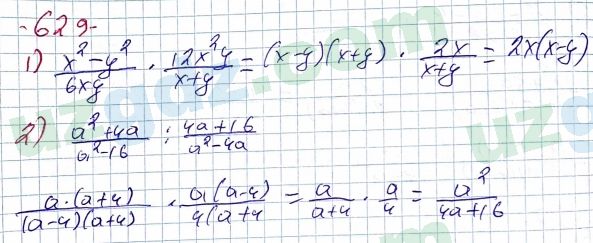 -629-
1) \frac{x^2-y^2}{6xy} \cdot \frac{12x^2y}{x+y} = (x-y)(x+y) \cdot \frac{2x}{x+y} = 2x(x-y)
2) \frac{a^2+4a}{a^2-16} : \frac{4a+16}{a^2-4a}
\frac{a \cdot (a+4)}{(a-4)(a+4)} \cdot \frac{a(a-4)}{4(a+4} = \frac{a}{a+4} \cdot \frac{a}{4} = \frac{a^2}{4a+16}